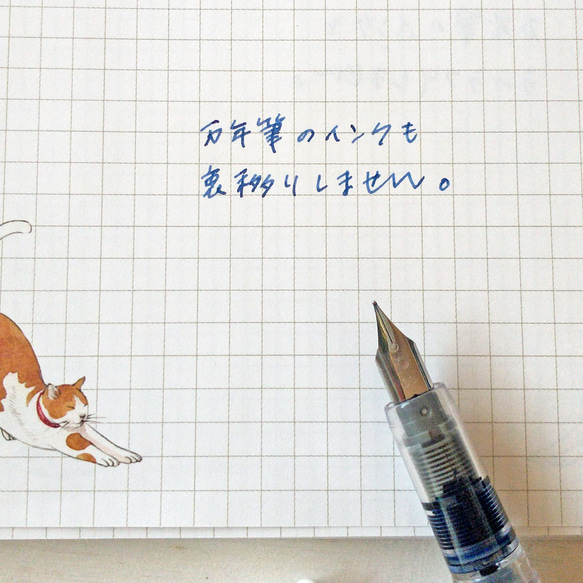 万年筆のインクも
裏移りしません。